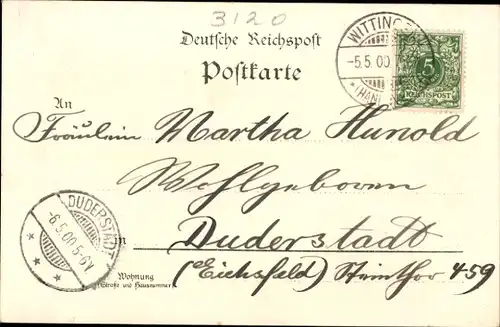 3120
Deutsche Reichspost
Postkarte
WITTING
-5.5.00
(HAN
5
REICHSPOST
An
Fräulein Martha Hunold
Wohlgeboren
in Duderstadt
(Eichsfeld) Steinthor 459
Wohnung
(Straße und Hausnummer)
DUDERSTADT
-6.5.00.5-6V